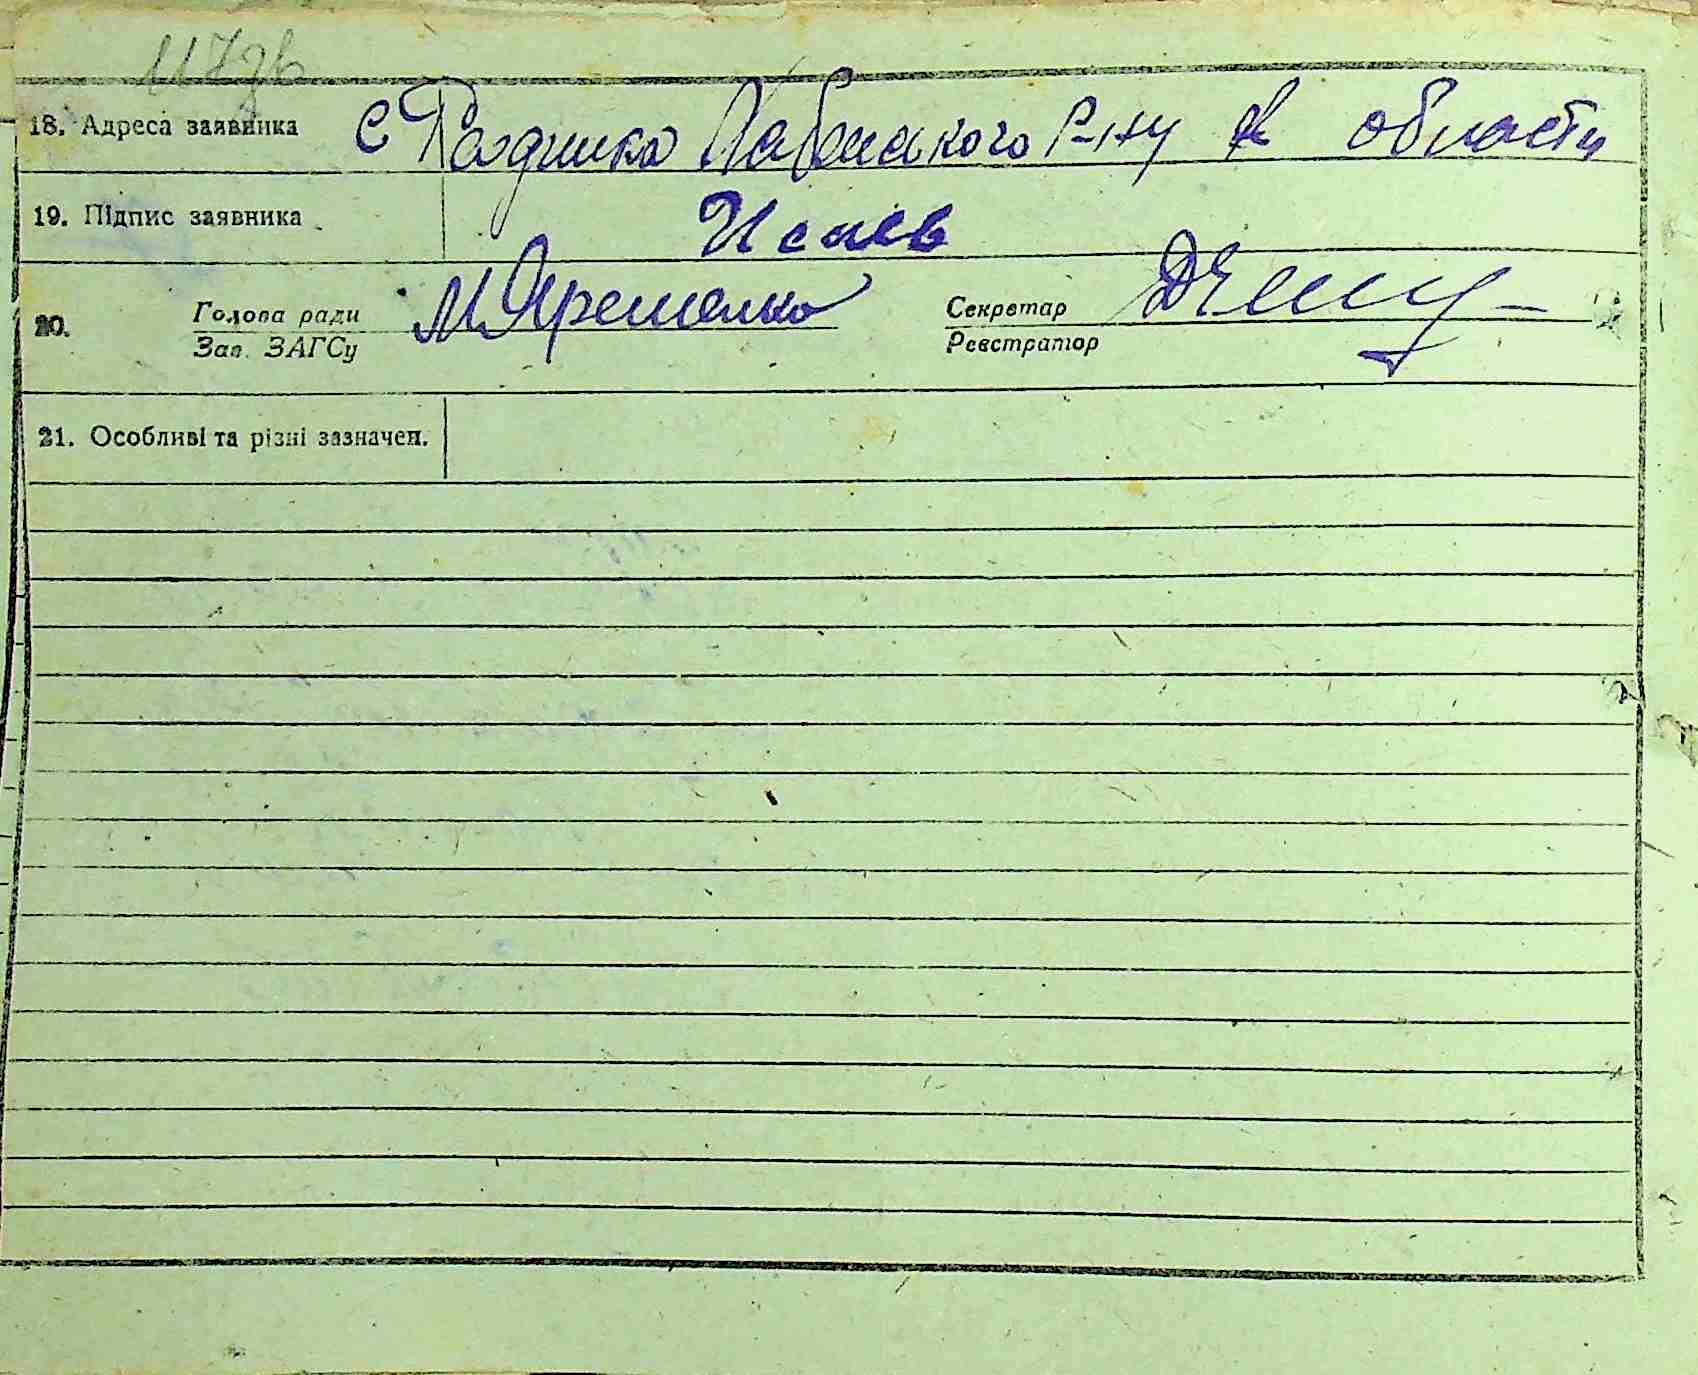 117зв
18. Адреса заявника с Роздишко Лабенського Р-ну К области
19. Підпис заявника Исаев
20. Голова ради М Яременко Секретар
Зав. ЗАГСу Реєстратор
21. Особливі та різні зазначен.